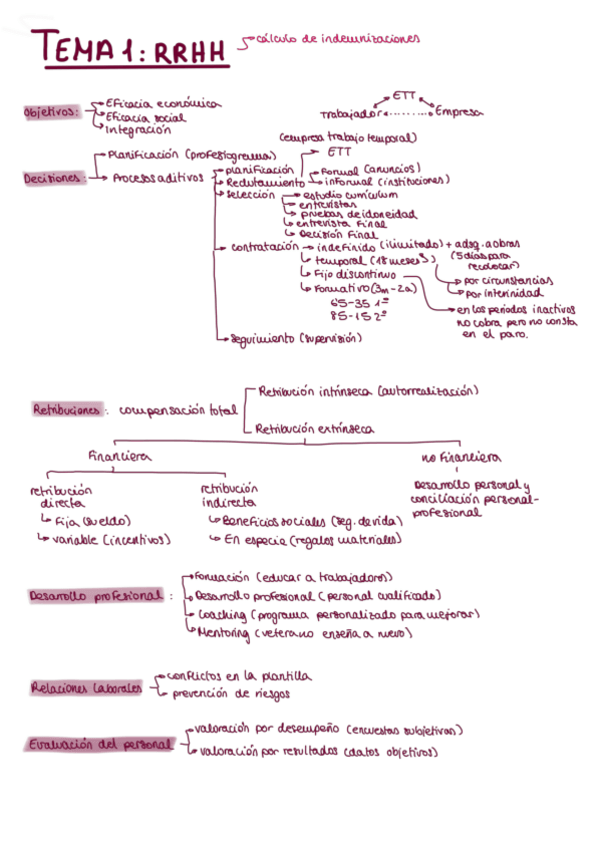 TEMA 1: RRHH
cálculo de indemnizaciones
Objetivos:
Eficacia económica
Eficacia social
Integración
ETT
Trabajador
Empresa
(empresa trabajo temporal)
ETT
Decisiones:
Planificación (profesiograma)
Procesos aditivos
planificación
Reclutamiento
Formal (anuncios)
informal (instituciones)
selección
estudio currículum
entrevistas
pruebas de idoneidad
entrevista final
Decisión Final
contratación
indefinido (ilimitado) + adsq. a obras
(5 días para recolocar)
temporal (18 meses)
por circunstancias
por interinidad
Fijo discontinuo
en los periodos inactivos
no cobra pero no consta
en el paro.
Formativo (3m-2a)
65-35 1º
85-15 2º
seguimiento (supervisión)
Retribuciones: compensación total
Retribución intrínseca (autorrealización)
Retribución extrínseca
Financiera
no Financiera
retribución
directa
Fija (sueldo)
variable (incentivos)
retribución
indirecta
Beneficios sociales (seg. de vida)
En especie (regalos materiales)
Desarrollo personal y
conciliación personal-
profesional
Desarrollo profesional:
Formación (educar a trabajadores)
Desarrollo profesional (personal cualificado)
Coaching (programa personalizado para mejorar)
Mentoring (veterano enseña a nuevo)
Relaciones Laborales
conflictos en la plantilla
prevención de riesgos
Evaluación del personal
valoración por desempeño (encuestas subjetivas)
valoración por resultados (datos objetivos)